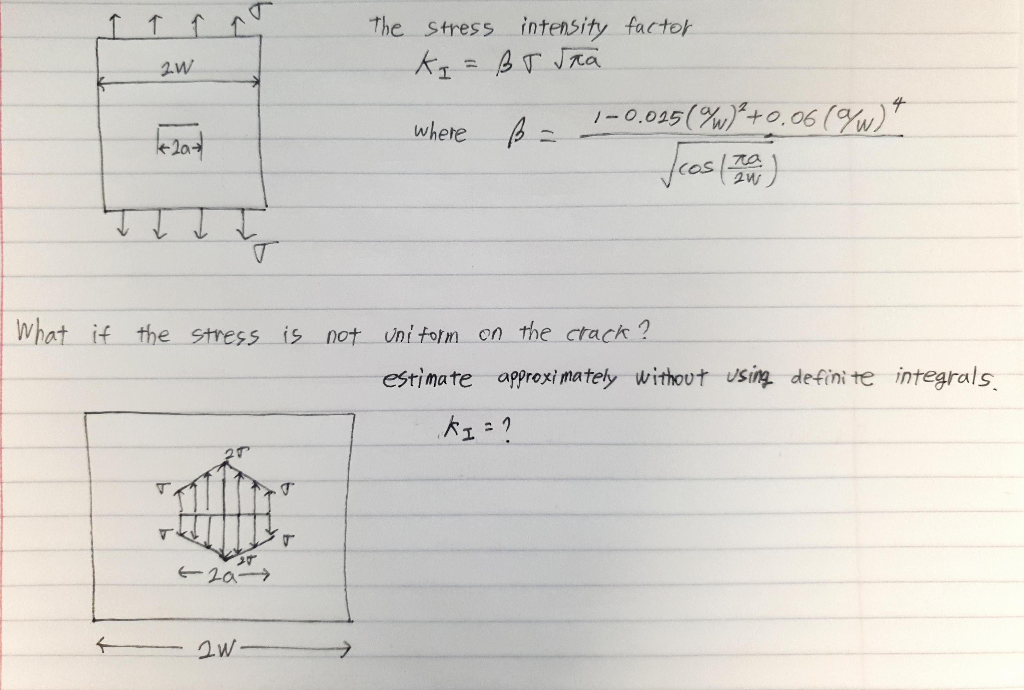 σ
The stress intensity factor
2W
K_I = β σ √πa
where β = (1-0.025(a/w)²+0.06(a/w)⁴) / √cos(πa/2W)
2a
σ
What if the stress is not uniform on the crack?
estimate approximately without using definite integrals.
K_I = ?
2σ
σ σ
σ σ
2σ
2a
2W